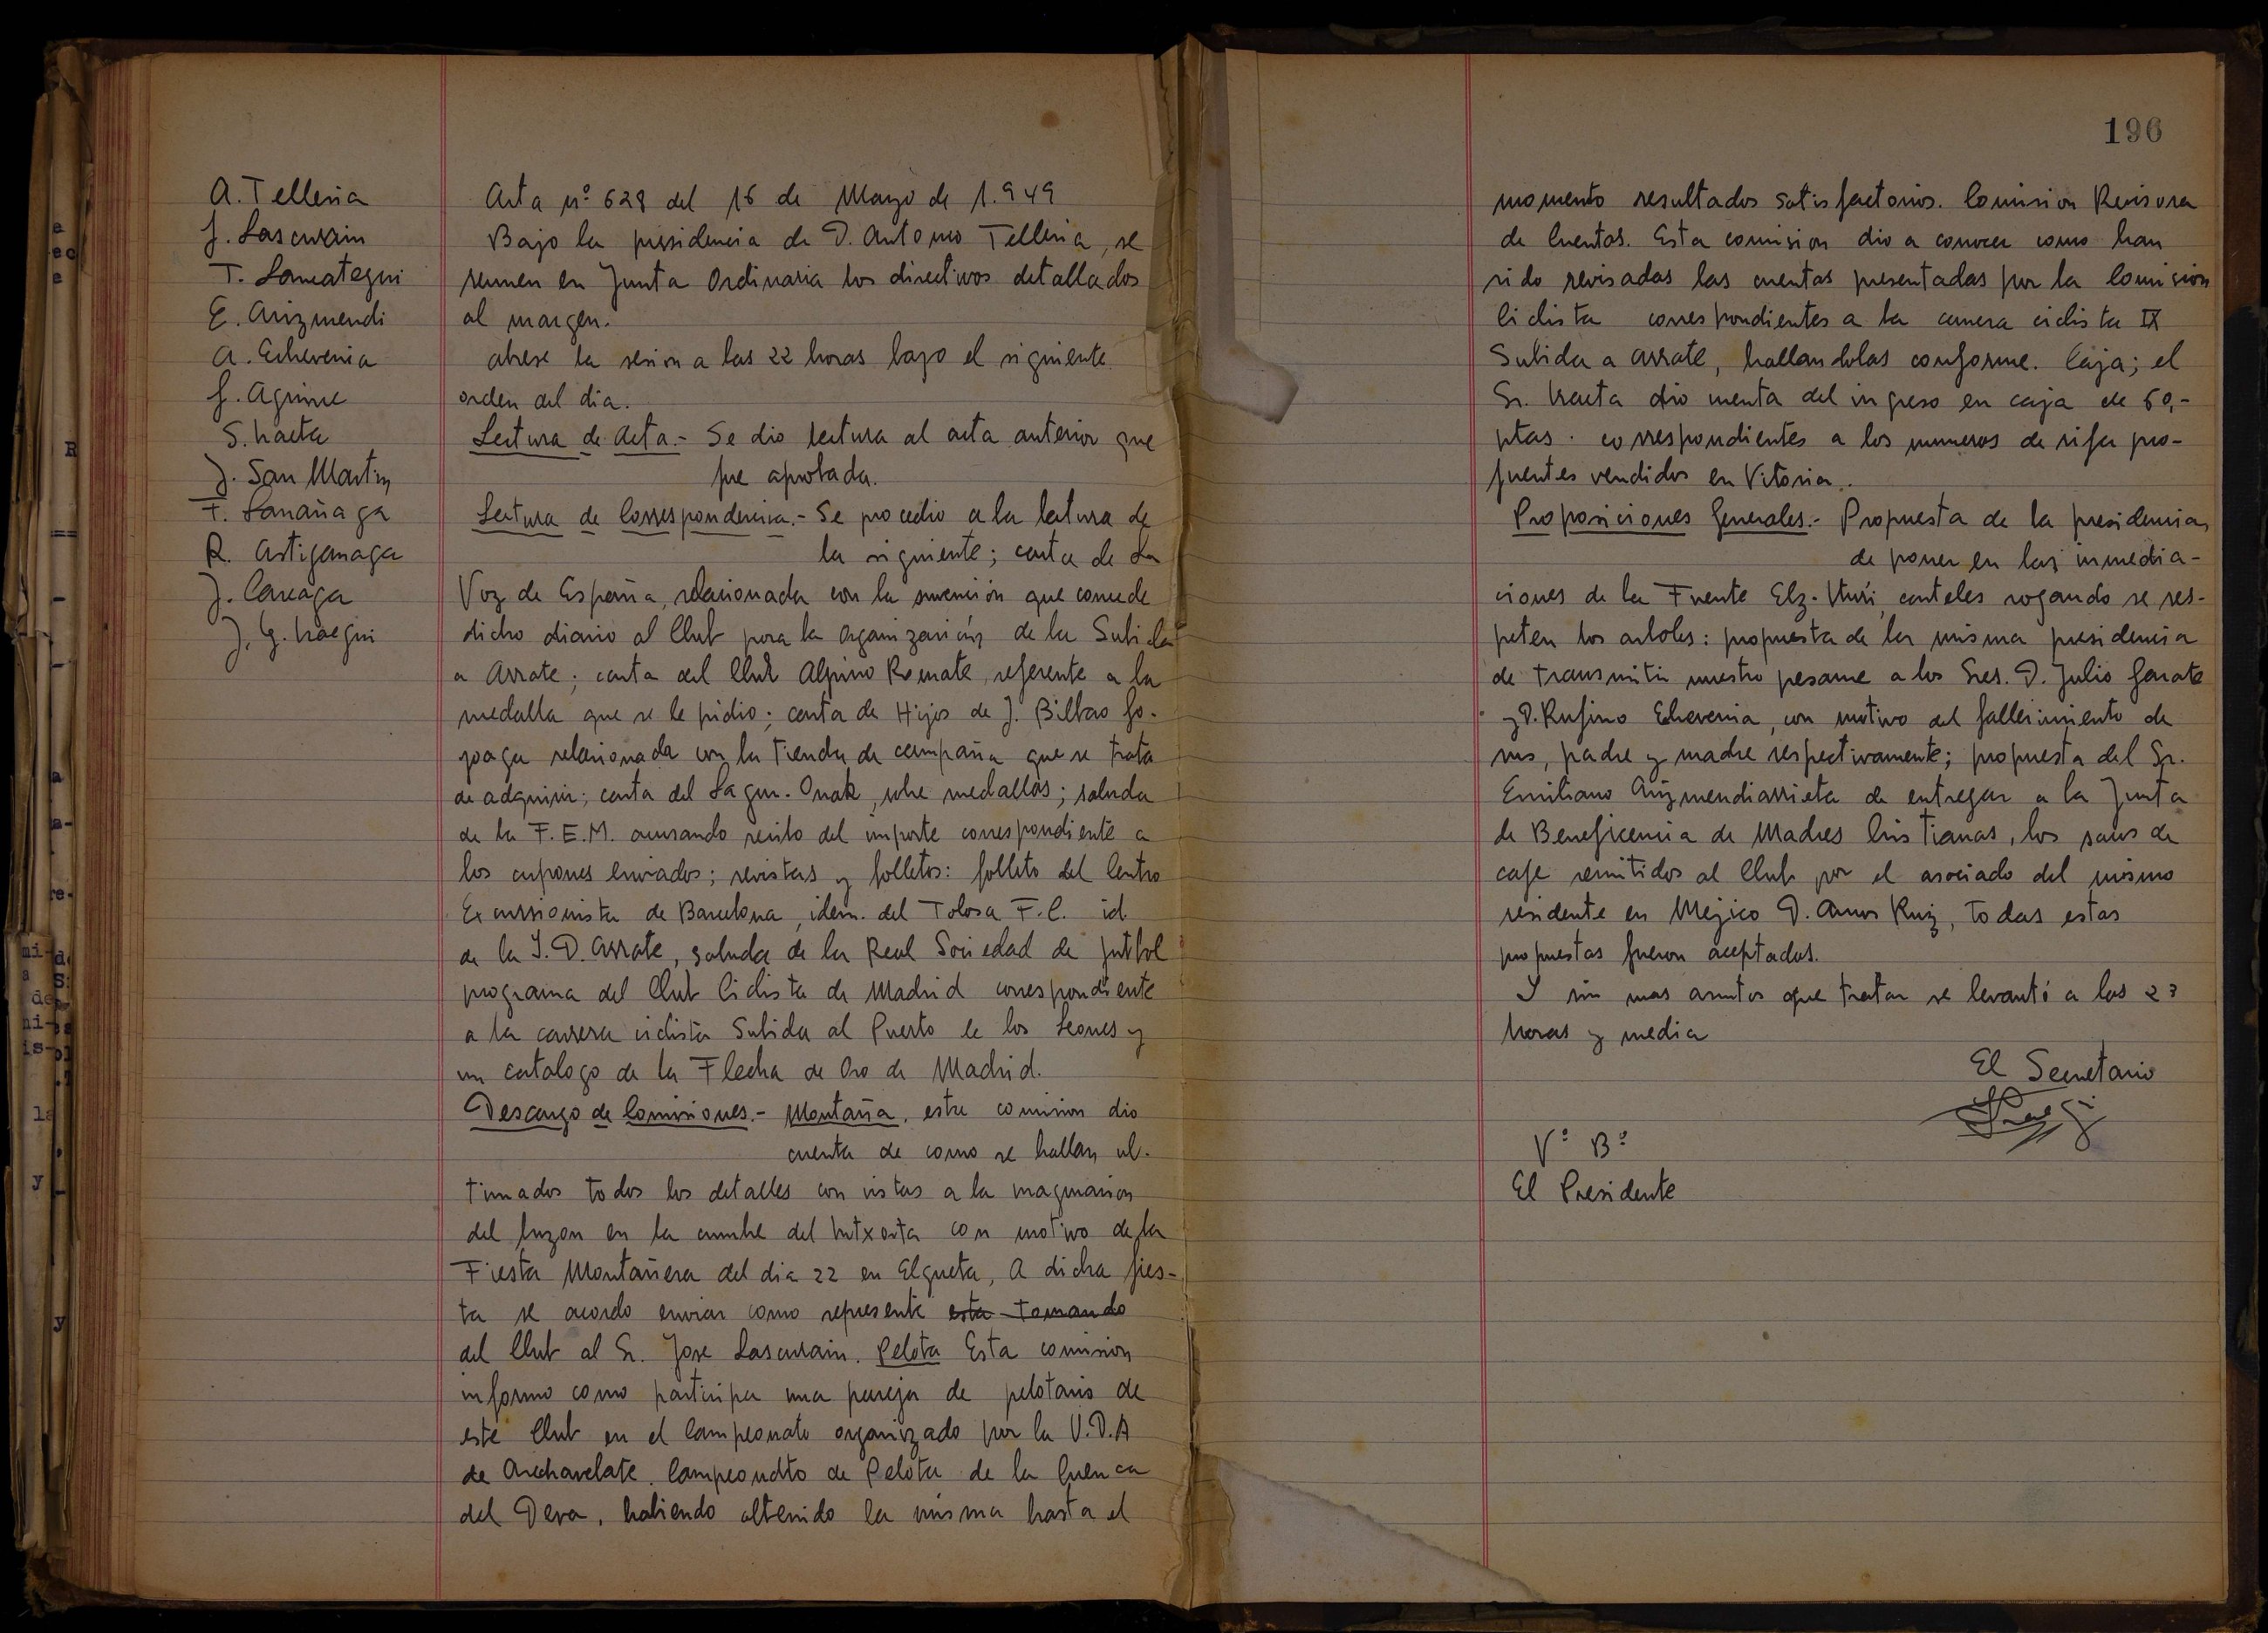 A. Telleria
J. Lascurain
T. Lamategui
E. Arizmendi
A. Echeverria
J. Aguirre
S. Iraeta
J. San Martin
F. Larrañaga
R. Astiganaga
J. Careaga
J. G. Iraegui
Acta nº 628 del 16 de Mayo de 1.949
Bajo la presidencia de D. Antonio Telleria, se
reunen en Junta Ordinaria los directivos detallados
al margen.
abrese la sesion a las 22 horas bajo el siguiente
orden del dia.
Lectura de Acta.- Se dio lectura al acta anterior que
fue aprobada.
Lectura de Correspondencia.- Se procedio a la lectura de
la siguiente; carta de La
Voz de España, relacionada con la suvención que concede
dicho diario al Club para la organización de la Subida
a Arrate; carta del Club Alpino Kemate, referente a la
medalla que se le pidio; carta de Hijos de J. Bilbao Go-
yoaga relacionada con la tienda de campaña que se trata
de adquirir; carta del Lagun-Onak, sobre medallas; saluda
de la F.E.M. acusando recibo del importe correspondiente a
los cupones enviados; revistas y folletos: folleto del Centro
Excursionista de Barcelona, idem. del Tolosa F.C. id
de la S.D. Arrate, saluda de la Real Sociedad de futbol
programa del Club Ciclista de Madrid correspondiente
a la carrera ciclista Subida al Puerto de los Leones y
un catalogo de la Flecha de Oro de Madrid.
Descargo de Comisiones.- Montaña, esta comision dio
cuenta de como se hallan ul-
timados todos los detalles con vistas a la inaguracion
del buzon en la cumbre del Intxorta con motivo de la
Fiesta Montañera del dia 22 en Elgueta, A dicha fies-
ta se acordo enviar como represente esta tomando
del Club al Sr. Jose Lascurain. Pelota Esta comision
informo como participa una pareja de pelotaris de
este Club en el Campeonato organizado por la U.D.A
de Arechavelate. Campeonato de Pelota de la Cuenca
del Deva, habiendo obtenido la misma hasta el
196
momento resultados satisfactorios. Comision Revisora
de Cuentas. Esta comision dio a conocer como han
sido revisadas las cuentas presentadas por la Comision
Ciclista correspondientes a la carrera ciclista IX
Subida a Arrate, hallandolas conforme. Caja; el
Sr. Iraeta dio cuenta del ingreso en caja de 60,-
ptas. correspondientes a los numeros de rifa pro-
fuentes vendidos en Vitoria.
Proposiciones Generales.- Propuesta de la presidencia
de poner en las inmedia-
ciones de la Fuente Elz-Iturri, carteles rogando se res-
peten los arboles: propuesta de la misma presidencia
de transmitir nuestro pesame a los Sres. D. Julio Garate
y D. Rufino Echeverria, con motivo del fallecimiento de
sus, padre y madre respectivamente; propuesta del Sr.
Emiliano Arizmendiarrieta de entregar a la Junta
de Beneficencia de Madres Cristianas, los sacos de
cafe remitidos al Club por el asociado del mismo
residente en Mejico D. Amos Ruiz, todas estas
propuestas fueron aceptadas.
Y sin mas asuntos que tratar se levantó a las 23
horas y media
El Secretario
Vº Bº
El Presidente